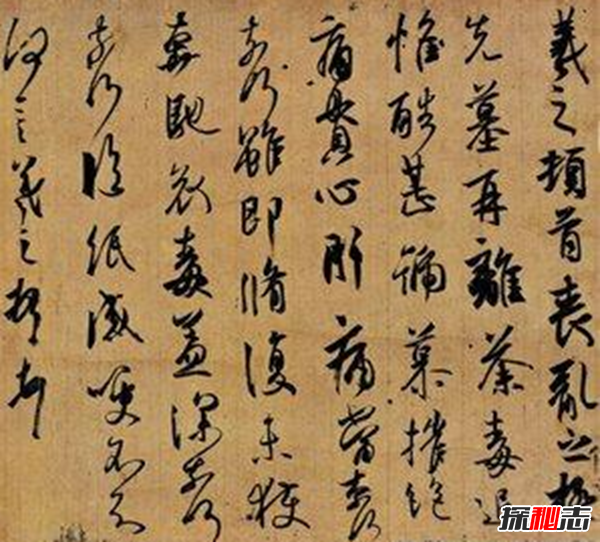 羲之頓首喪亂之極
先墓再離荼毒追
惟酷甚號慕摧絕
痛貫心肝痛當奈何
奈何雖即脩復未獲
奔馳哀毒益深奈何
奈何臨紙感哽不知
何言羲之頓首
探秘志